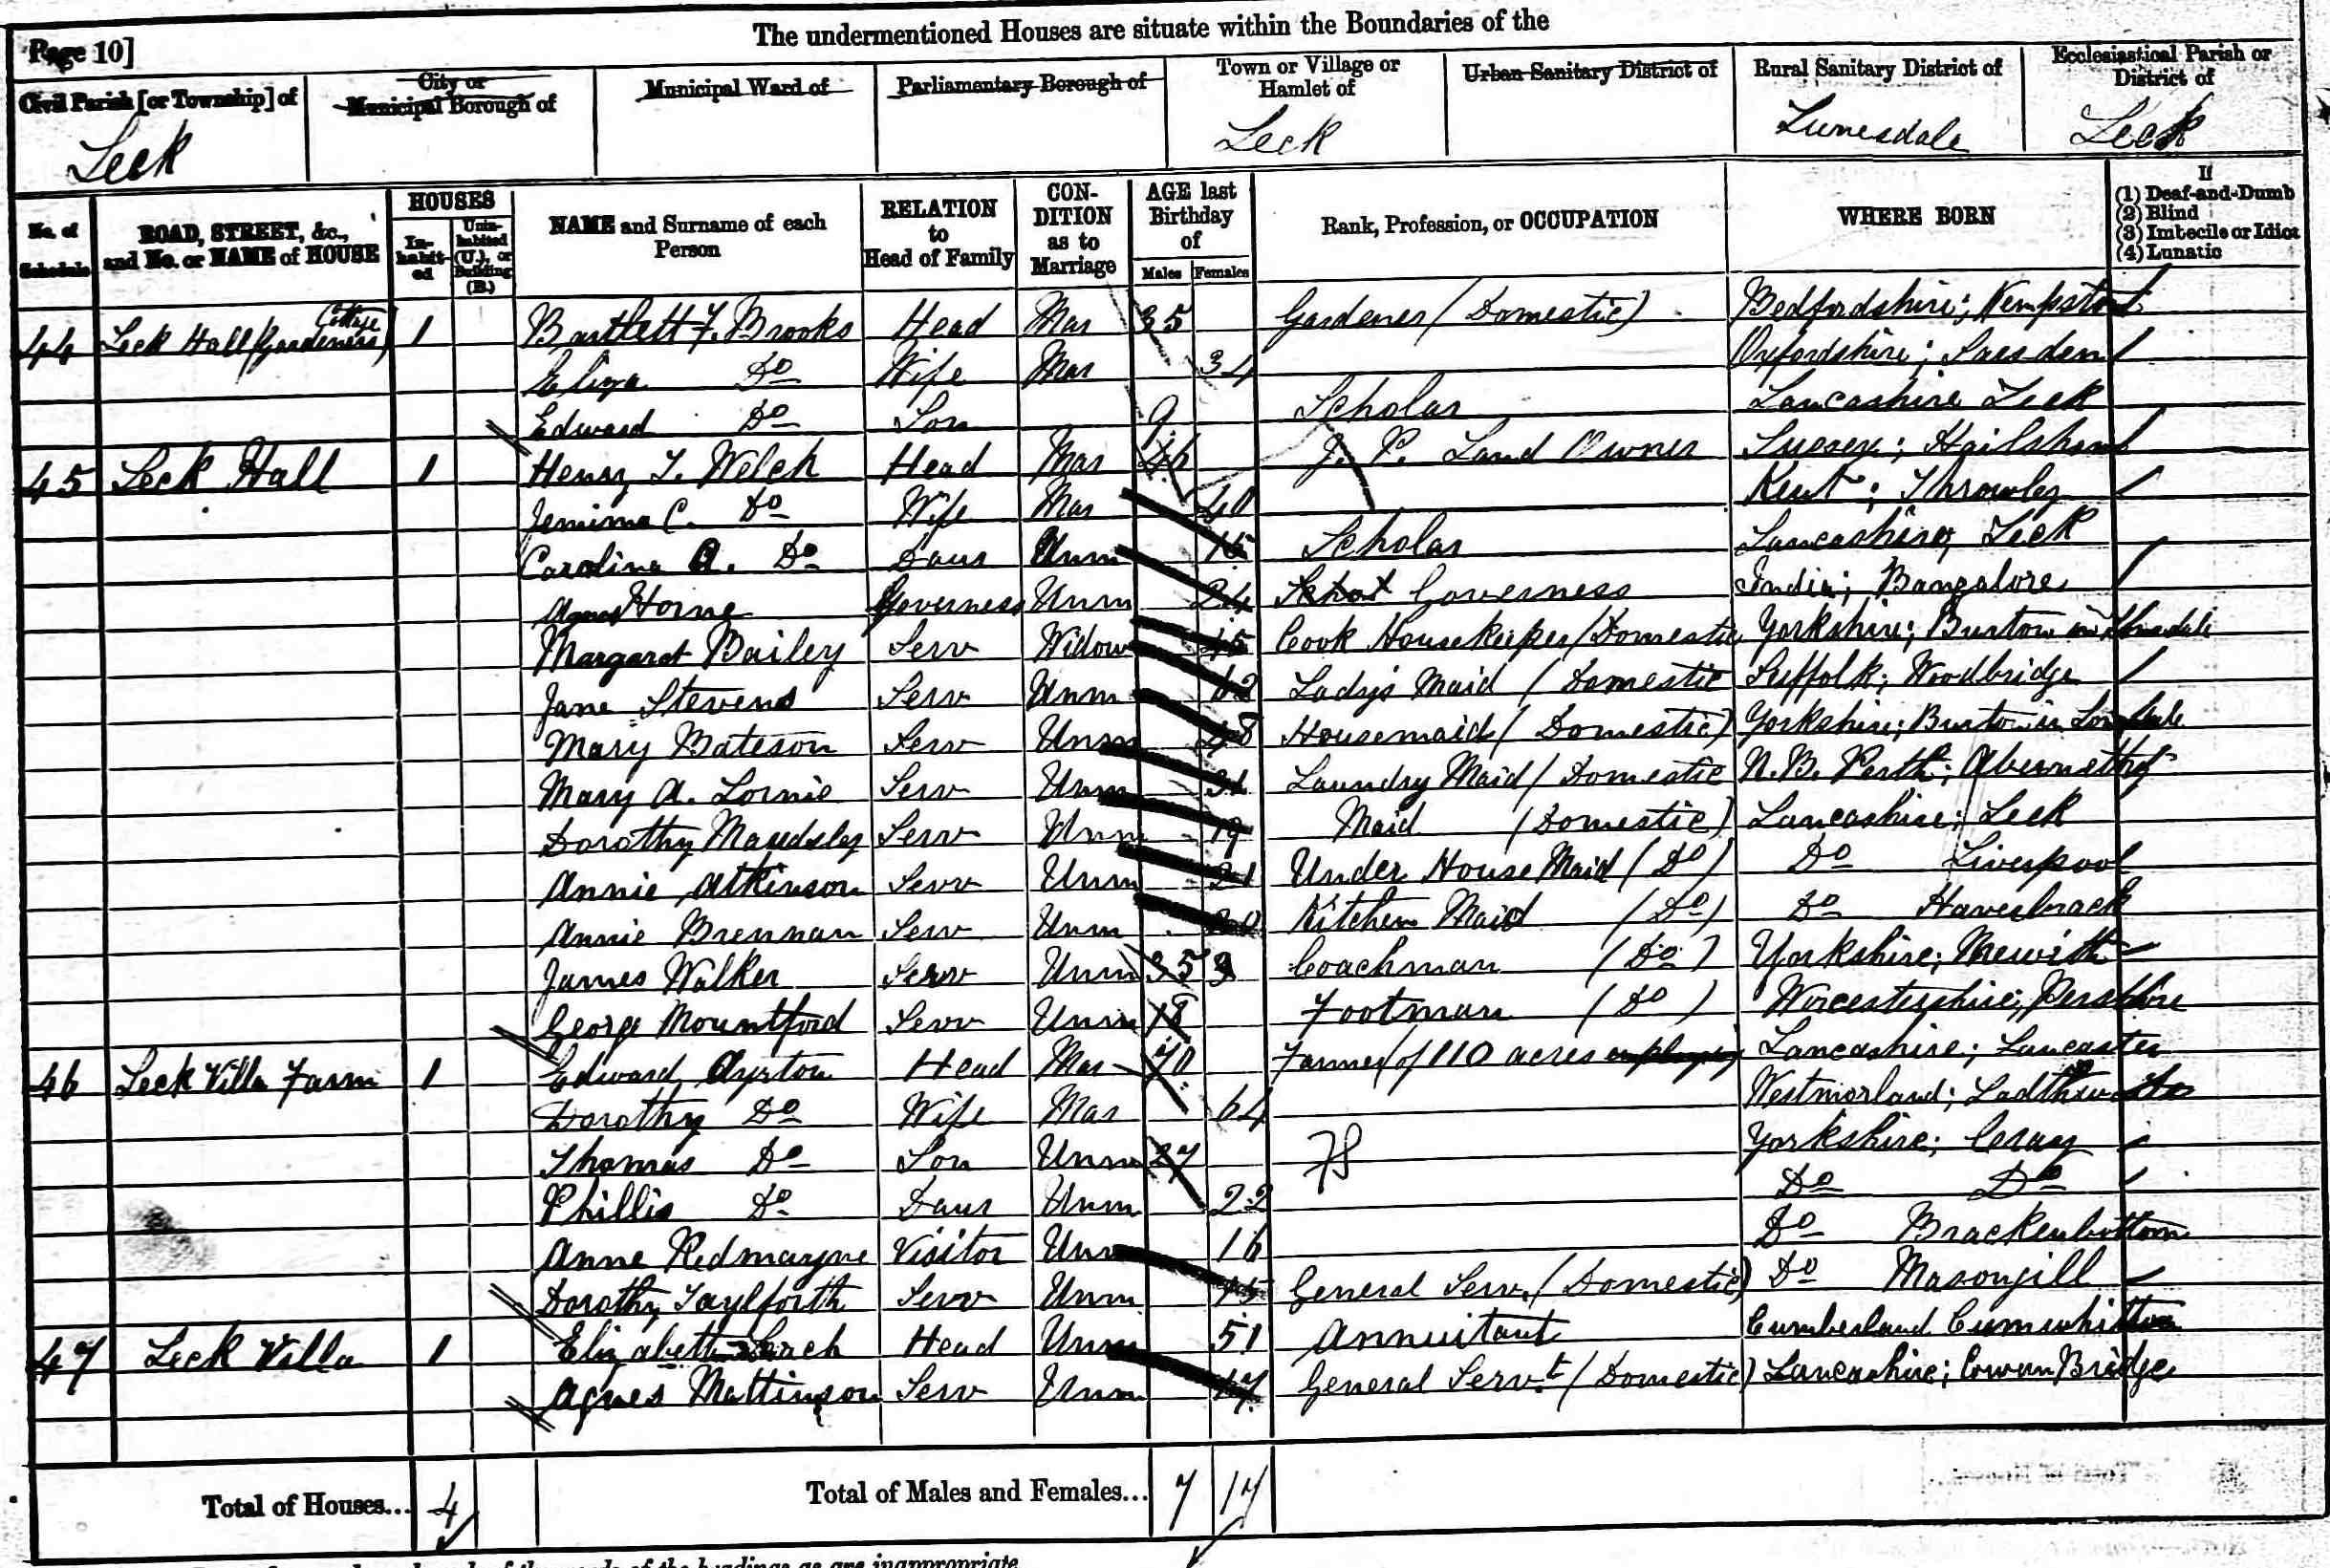 The undermentioned Houses are situate within the Boundaries of the
Page 10]
Civil Parish [or Township] of
City or Municipal Borough of
Municipal Ward of
Parliamentary Borough of
Town or Village or Hamlet of
Urban Sanitary District of
Rural Sanitary District of
Ecclesiastical Parish or District of
Leck
Leck
Lunesdale
Leck
No. of Schedule
ROAD, STREET, &c., and No. or NAME of HOUSE
HOUSES
In-habit-ed
Unin-habited (U.), or Building (B.)
NAME and Surname of each Person
RELATION to Head of Family
CON-DITION as to Marriage
AGE last Birthday of
Males Females
Rank, Profession, or OCCUPATION
WHERE BORN
If
(1) Deaf-and-Dumb
(2) Blind
(3) Imbecile or Idiot
(4) Lunatic
44 Leck Hall (Gardeners Cottage) 1 Bartlett F. Brooks Head Mar 35 Gardener (Domestic) Bedfordshire; Kempston
Eliza Do Wife Mar 34 Oxfordshire; Sarsden
Edward Do Son 9 Scholar Lancashire Leck
45 Leck Hall 1 Henry T. Welch Head Mar 46 J. P. Land Owner Sussex; Hailsham
Jemima C. Do Wife Mar 40 Kent; Throwley
Caroline A. Do Daur Unm 15 Scholar Lancashire, Leck
Agnes Horne Governess Unm 24 Governess India; Bangalore
Margaret Bailey Serv Widow 45 Cook Housekeeper (Domestic Yorkshire; Burton in Lonsdale
Jane Stevens Serv Unm Lady's Maid (Domestic Suffolk; Woodbridge
Mary Bateson Serv Unm 48 Housemaid (Domestic) Yorkshire; Burton in Lonsdale
Mary A. Lornie Serv Unm 31 Laundry Maid (Domestic N.B. Perth; Abernethy
Dorothy Maudsley Serv Unm 19 Maid (Domestic) Lancashire; Leck
Annie Atkinson Serv Unm 21 Under House Maid (Do) Do Liverpool
Annie Brennan Serv Unm 20 Kitchen Maid (Do) Do Haverbrack
James Walker Serv Unm 35 Coachman (Do) Yorkshire; Mewith
George Mountford Serv Unm 18 Footman (Do) Worcestershire; Pershore
46 Leck Villa Farm 1 Edward Ayrton Head Mar 70 Farmer (of 110 acres employing Lancashire; Lancaster
Dorothy Do Wife Mar 64 Westmorland;
Thomas Do Son Unm 27 FS Yorkshire; Cray
Phillis Do Daur Unm 22 Do Do
Anne Redmayne Visitor Unm 16 Do Brackenbottom
Dorothy Taylforth Serv Unm 15 General Serv. (Domestic) Do Masongill
47 Leck Villa 1 Elizabeth Head Unm 51 Annuitant Cumberland Cumwhitton
Agnes Mattinson Serv Unm 17 General Servt. (Domestic) Lancashire; Cowan Bridge
Total of Houses... 4
Total of Males and Females... 7 17